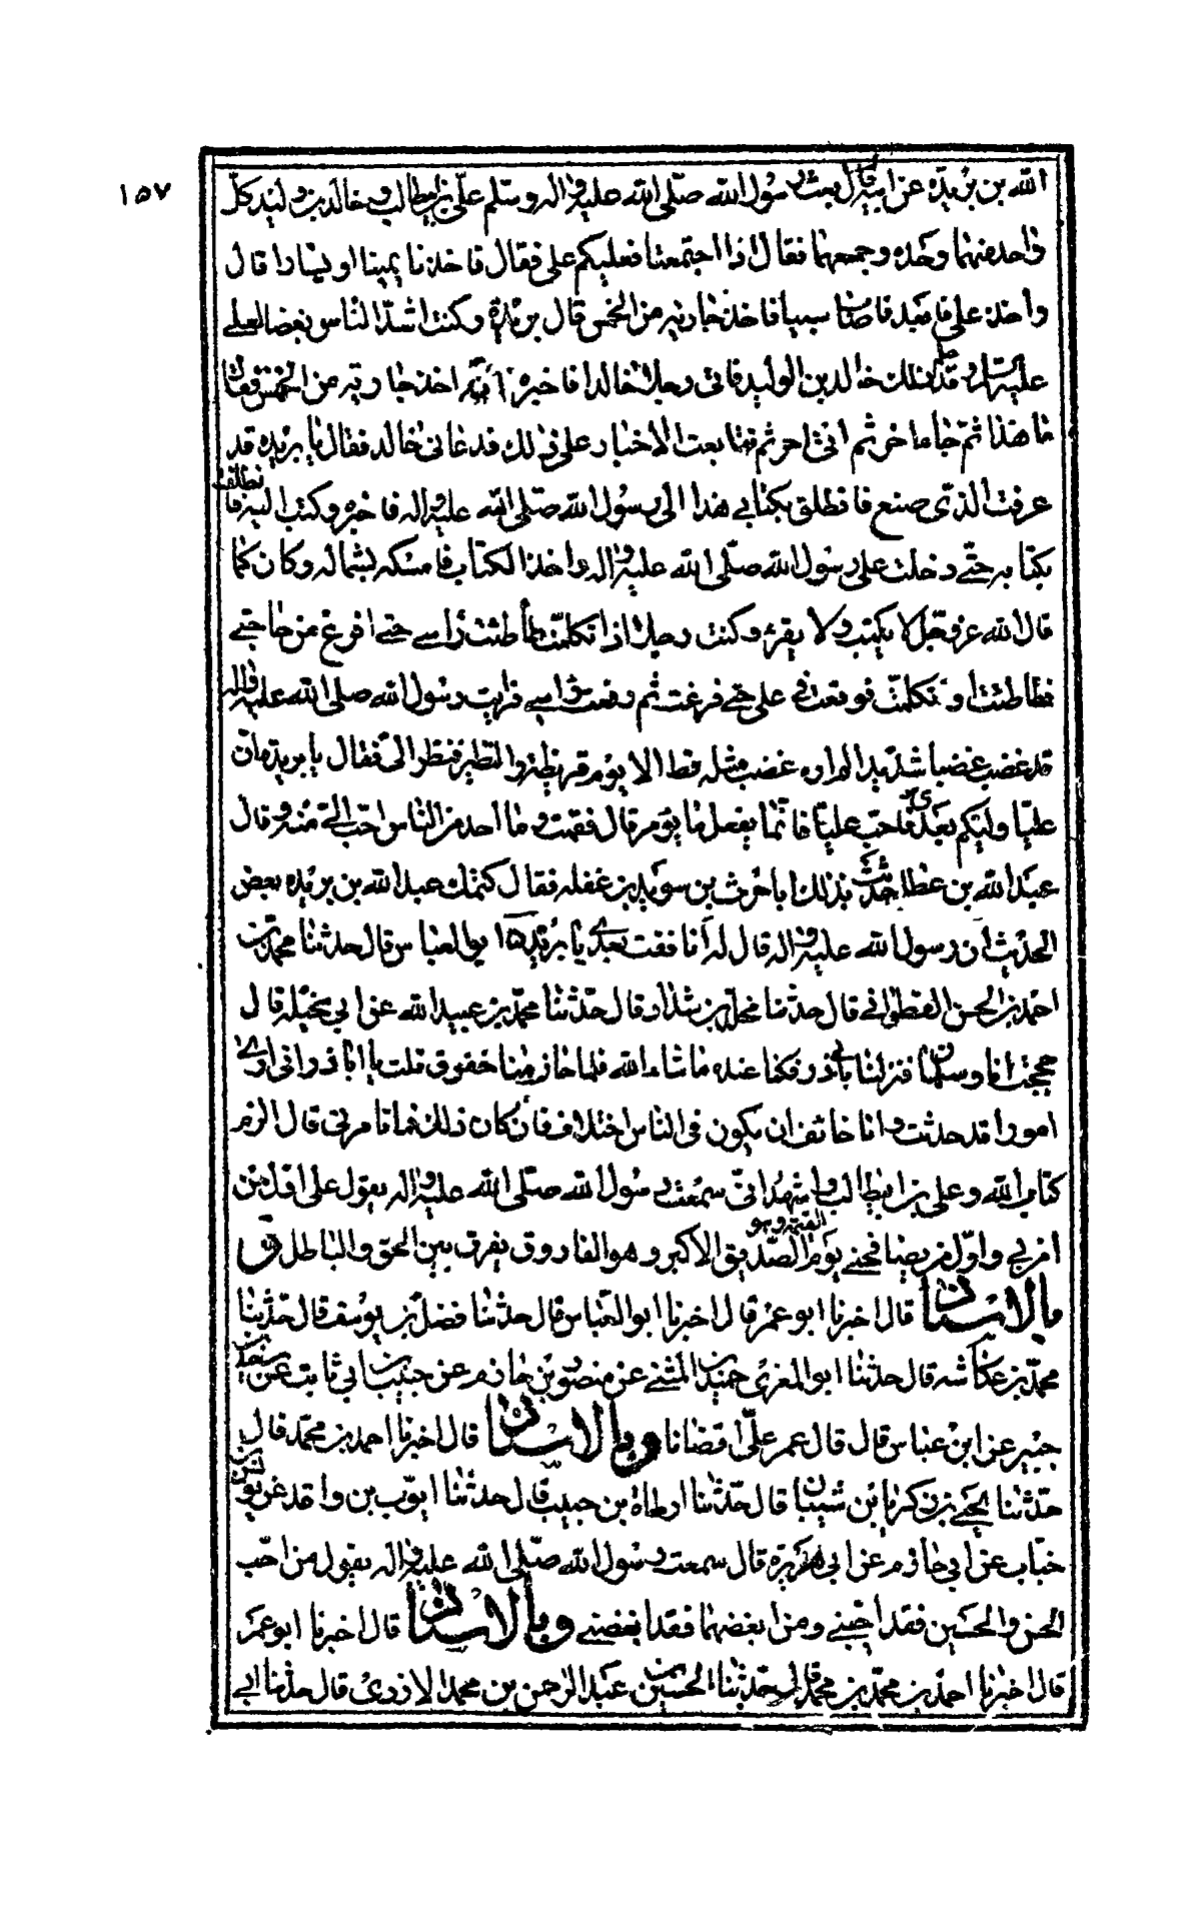 ١٥٧
الله بن بريدة عن ابيه قال بعث رسول الله صلّى الله عليه واله وسلم علىّ بن ابيطالب وخالد بن وليد كلّ
واحد منهما وحده وجمعهما فقال اذا اجتمعتما فعليكم على فقال فاخذنا يمينا او يسارا قال
واخذ على فابعد فاصاب سبيا فاخذ جارية من الخمس قال بريدة وكنت اشدّ الناس بغضا لعلى
عليه السلام وقد علم ذلك خالد بن الوليد فاتى رجل خالدا فاخبره انّه اخذ جارية من الخمس فقال
ما هذا ثمّ جاء اخر ثم اتى اخر ثم تتابعت الاخبار على ذلك فدعانى خالد فقال يا بريدة قد
عرفت الذى صنع فانطلق بكتابى هذا الى رسول الله صلّى الله عليه واله فاخبره وكتب اليه فانطلقت
بكتابه حتّى دخلت على رسول الله صلّى الله عليه واله واخذ الكتاب فامسكه بشماله وكان كما
قال الله عز وجل لا يكتب ولا يقرء وكنت رجلا اذا تكلمت طأطئت راسى حتى افرغ من حاجتى
فطاطئت وتكلمت فوقعت فى على حتى فرغت ثم رفعت راسى فرايت رسول الله صلى الله عليه واله
قد غضب غضبا شديدا لم اره غضب مثله قط الا يوم قريظة والنظير فنظر الىّ فقال يا بريدة ان
عليّا وليكم بعدى فاحب عليّا فانّما يفعل ما يؤمر قال فقمت وما احد من الناس احب الىّ منه وقال
عبد الله بن عطا حدثت بذلك ابا حرث بن سويد بن غفلة فقال كتمك عبد الله بن بريدة بعض
الحديث ان رسول الله عليه واله قال له أنافقت بعدى يا بريدة ١٥ ابو العباس قال حدثنا محمد بن
احمد بن الحسن القطوانى قال حدثنا مخلد بن شداد قال حدّثنا محمّد بن عبيد الله عن ابى سخيله قال
حججت انا وسلمان فنزلنا بابى ذر فكنا عنده ما شاء الله فلما حان منا خفوق قلت يا ابا ذر انى ارى
امورا قد حدثت وانا خائف ان يكون فى الناس اختلاف فان كان ذلك فما تامرنى قال الزم
كتاب الله وعلى بن ابيطالب واشهد انّى سمعت رسول الله صلّى الله عليه واله يقول على اوّل من
امن بى واوّل من يصافحنى يوم القيمة وهو الصّديق الاكبر وهو الفاروق يفرق بين الحق والباطل و
بالاسناد قال اخبرنا ابو عمر قال اخبرنا ابو العبّاس قال حدثنا فضل بن يوسف قال حدّثنا
محمّد بن عكاشه قال حدثنا ابو المغرى حميد بن المثنى عن منصور بن حازم عن حبيب بن ابى ثابت عن سعيد بن
جبير عن ابن عباس قال قال عمر علىّ اقضانا وبالاسناد قال اخبرنا احمد بن محمّد قال
حدّثنا يحيى بن زكريا بن شيبان قال حدّثنا ارطاة بن حبيب قال حدثنا ايّوب بن واقد عن يونس بن
خبّاب عن ابى حازم عن ابى هريرة قال سمعت رسول الله صلّى الله عليه واله يقول من احب
الحسن والحسين فقد احبنى ومن ابغضهما فقد ابغضنى وبالاسناد قال اخبرنا ابو عمر
قال اخبرنا احمد بن محمّد بن محمد قال حدّثنا الحسين بن عبد الرحمن بن محمد الازدى قال حدثنا ابى